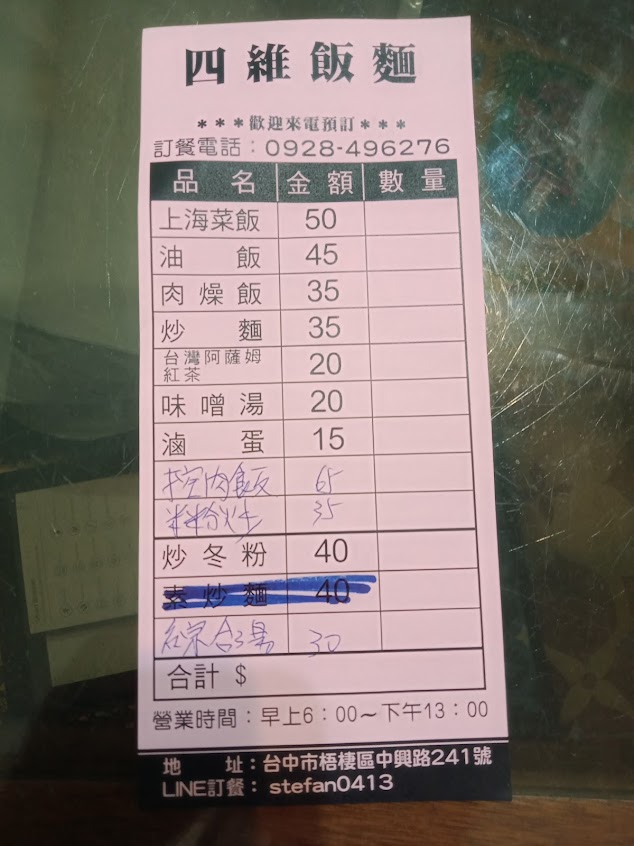 四維飯麵
***歡迎來電預訂***
訂餐電話：0928-496276
品名 金額 數量
上海菜飯 50
油飯 45
肉燥飯 35
炒麵 35
台灣阿薩姆
紅茶 20
味噌湯 20
滷蛋 15
控肉飯 65
35
炒冬粉 40
素炒麵 40
綜合湯 30
合計 $
營業時間：早上6：00～下午13：00
地址：台中市梧棲區中興路241號
LINE訂餐： stefan0413